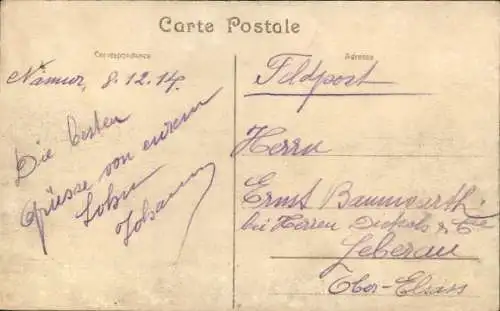 Carte Postale
Correspondance
Adresse
Namur, 8.12.14.
Die besten
Grüsse von eurem
Sohn
Johann
Feldpost
Herrn
Ernst Baumwarth.
bei Herren & Cie
Leberau
Ober-Elsass